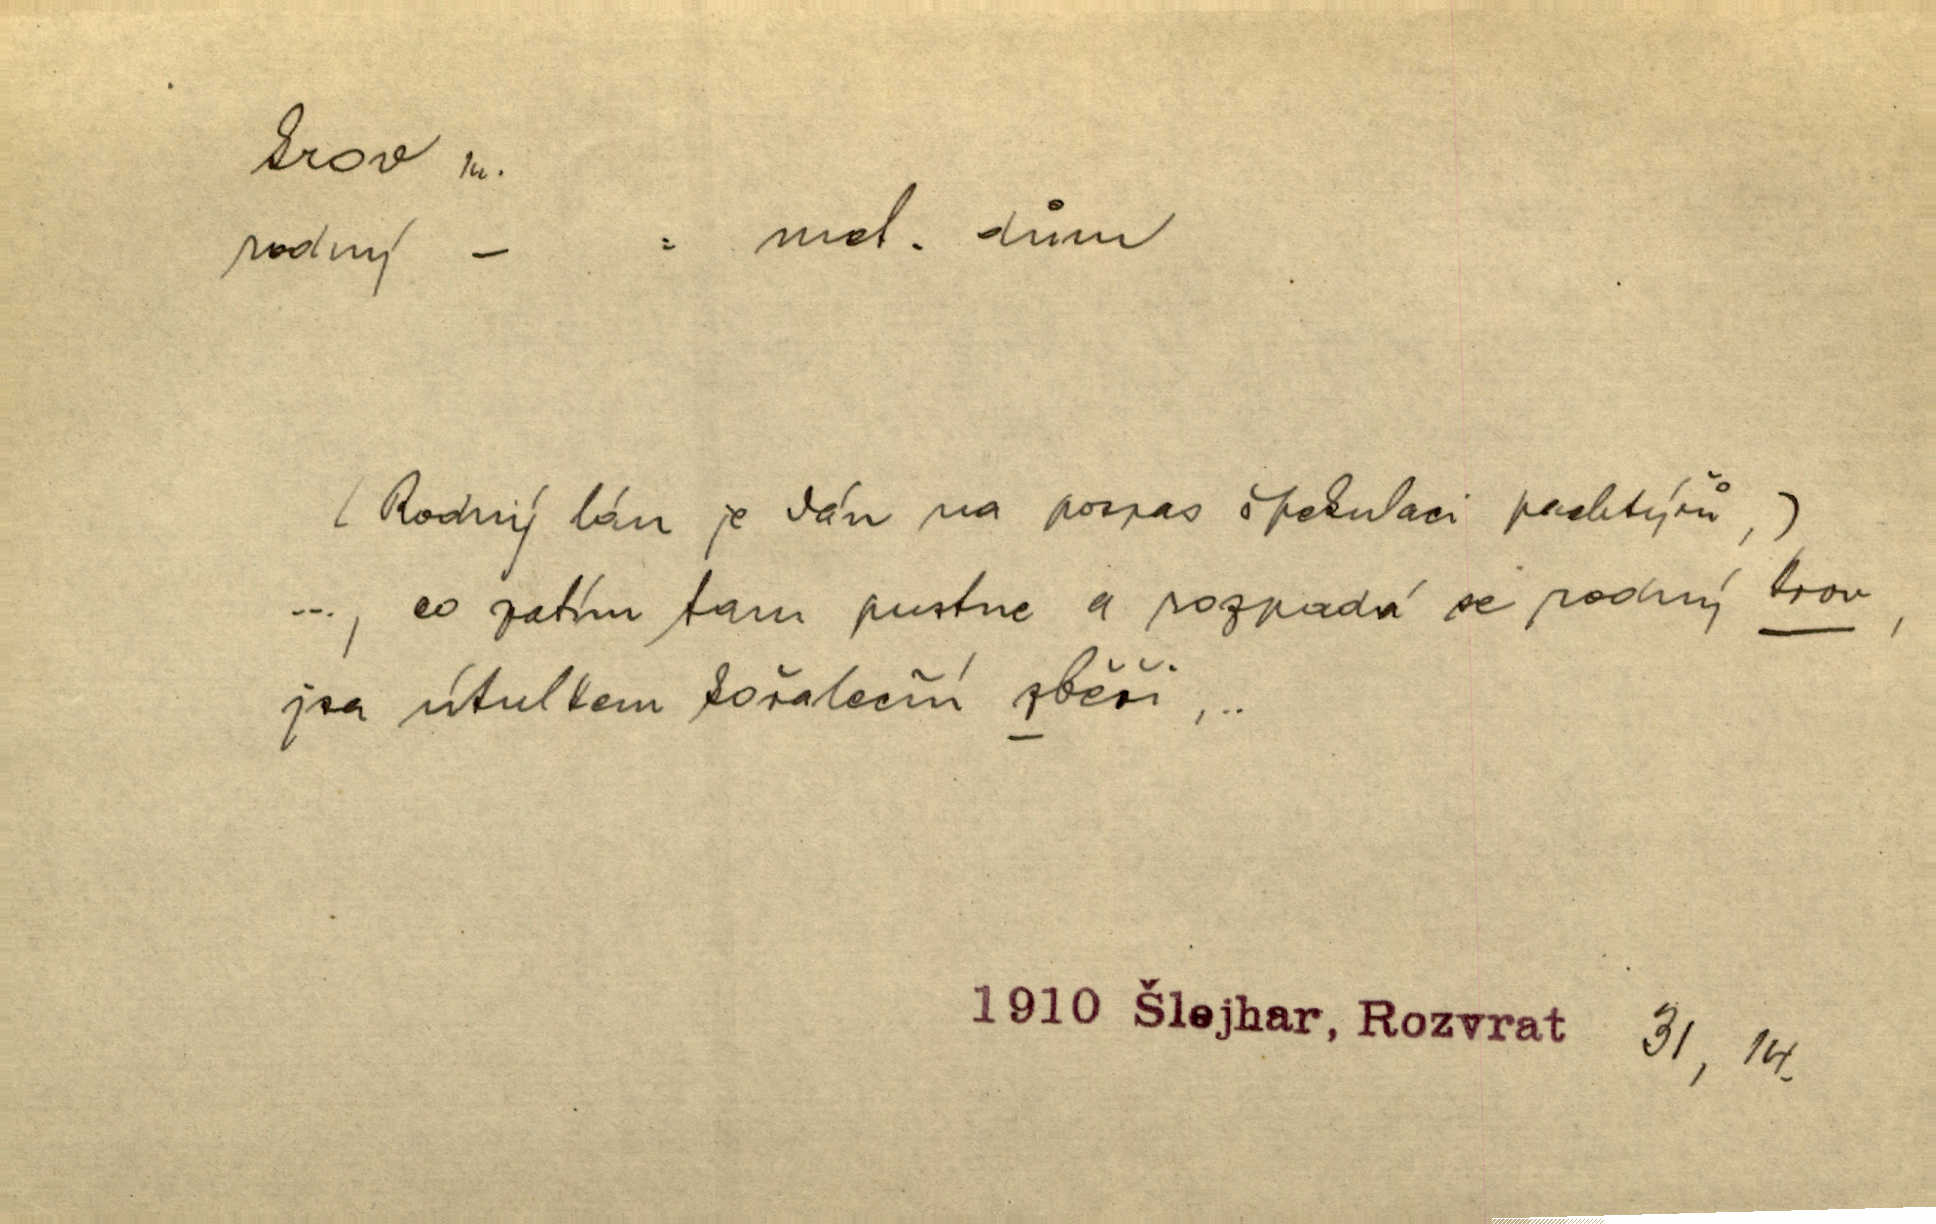 krov m.
rodný – = met. dům
(Rodný lán je dán na pospas špekulaci pachtýřů,)
..., co zatím tam pustne a rozpadá se rodný krov,
jsa útulkem kořaleční zběři,..
1910 Šlejhar, Rozvrat 31, 14.